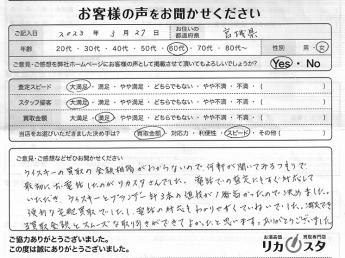 お客様の声をお聞かせください
ご記入日 2023年3月27日 お住いの都道府県 宮城県
年齢 20代・30代・40代・50代・60代・70代・80代〜 性別 男・女
ご意見・ご感想を弊社ホームページにお客様の声として掲載させて頂いてもよろしいでしょうか? Yes・No
査定スピード 大満足・満足・やや満足・どちらでもない・やや不満・不満・( )
スタッフ接客 大満足・満足・やや満足・どちらでもない・やや不満・不満・( )
買取金額 大満足・満足・やや満足・どちらでもない・やや不満・不満・( )
当店をお選びいただきました決め手は? 買取金額・対応力・利便性・スピード・その他( )
ご意見・ご感想などぜひお聞かせください
ウイスキーの買取の金額相場がわからないので、何軒か聞いてみるつもりで
最初にお電話したのがリカスタさんでした。電話での査定にもすぐ対応して
いただき、ウイスキーとブランデー計3本の通販が1番高かったので決めました。
便利な宅配買取でしたし、電話の対応もわかりやすくていねいで、満足でき
る買取金額とスムーズな取り引きができてよかったと思います。ありがとうございました。
ご協力ありがとうございました。
この度は誠にありがとうございました。
お酒高価 買取専門店
リカスタ